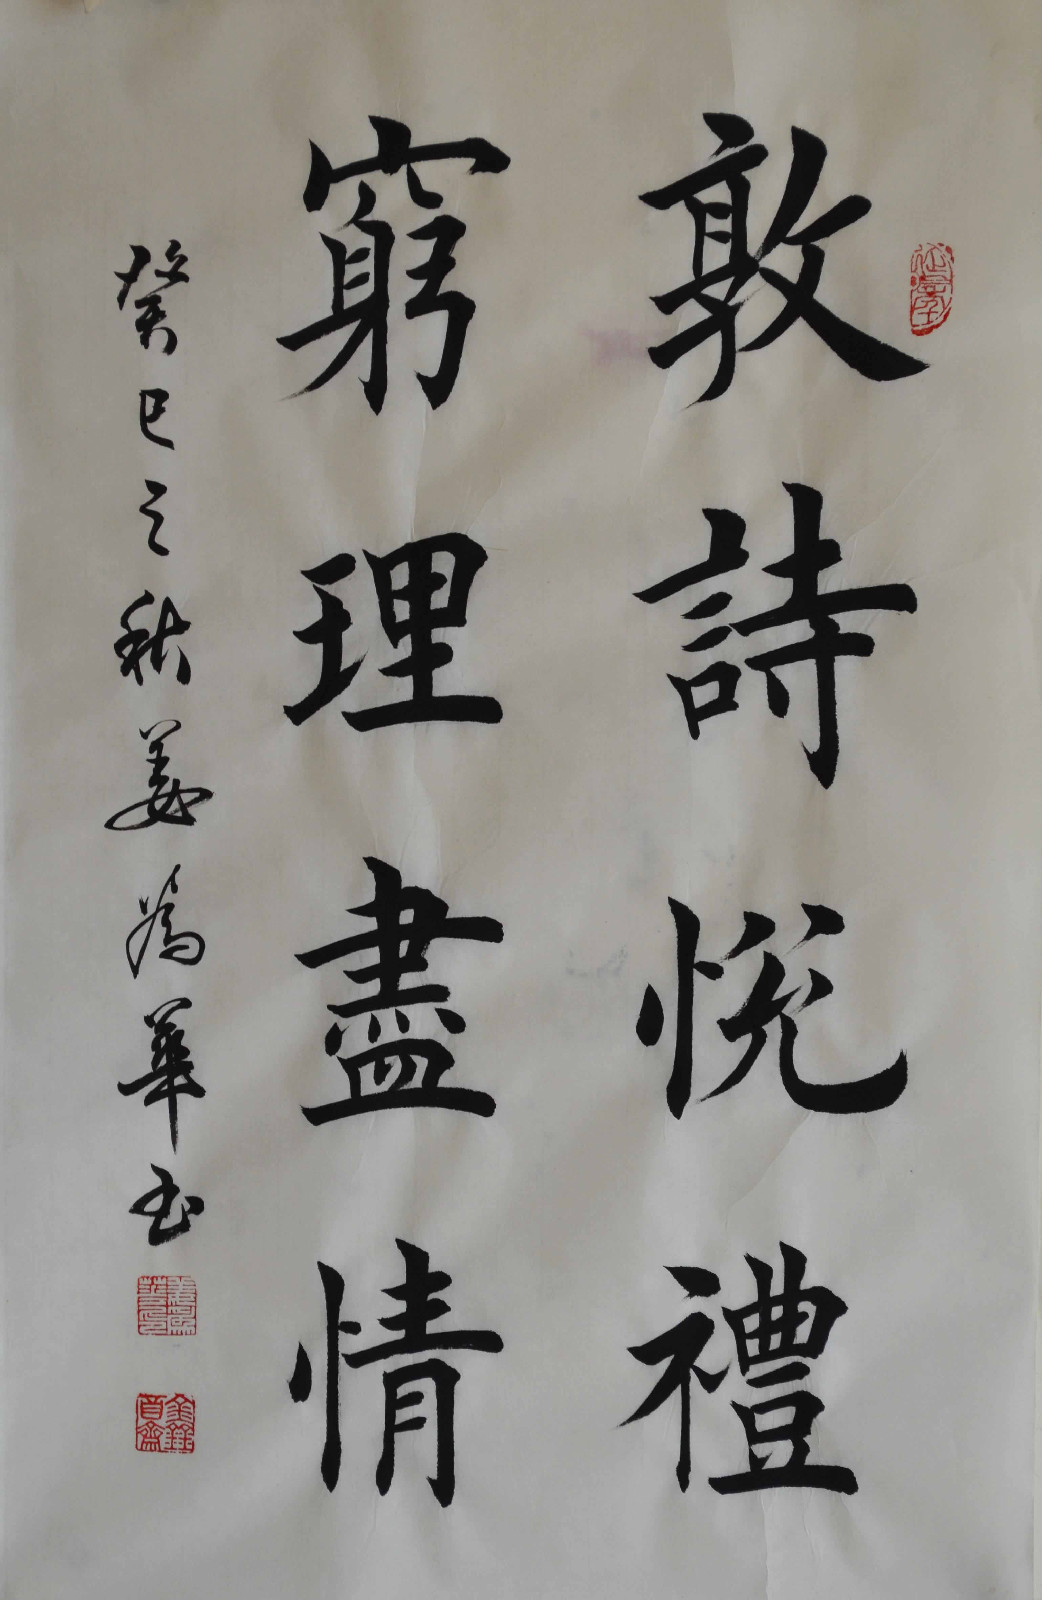 敦詩悦禮
窮理盡情
癸巳之秋姜為華書